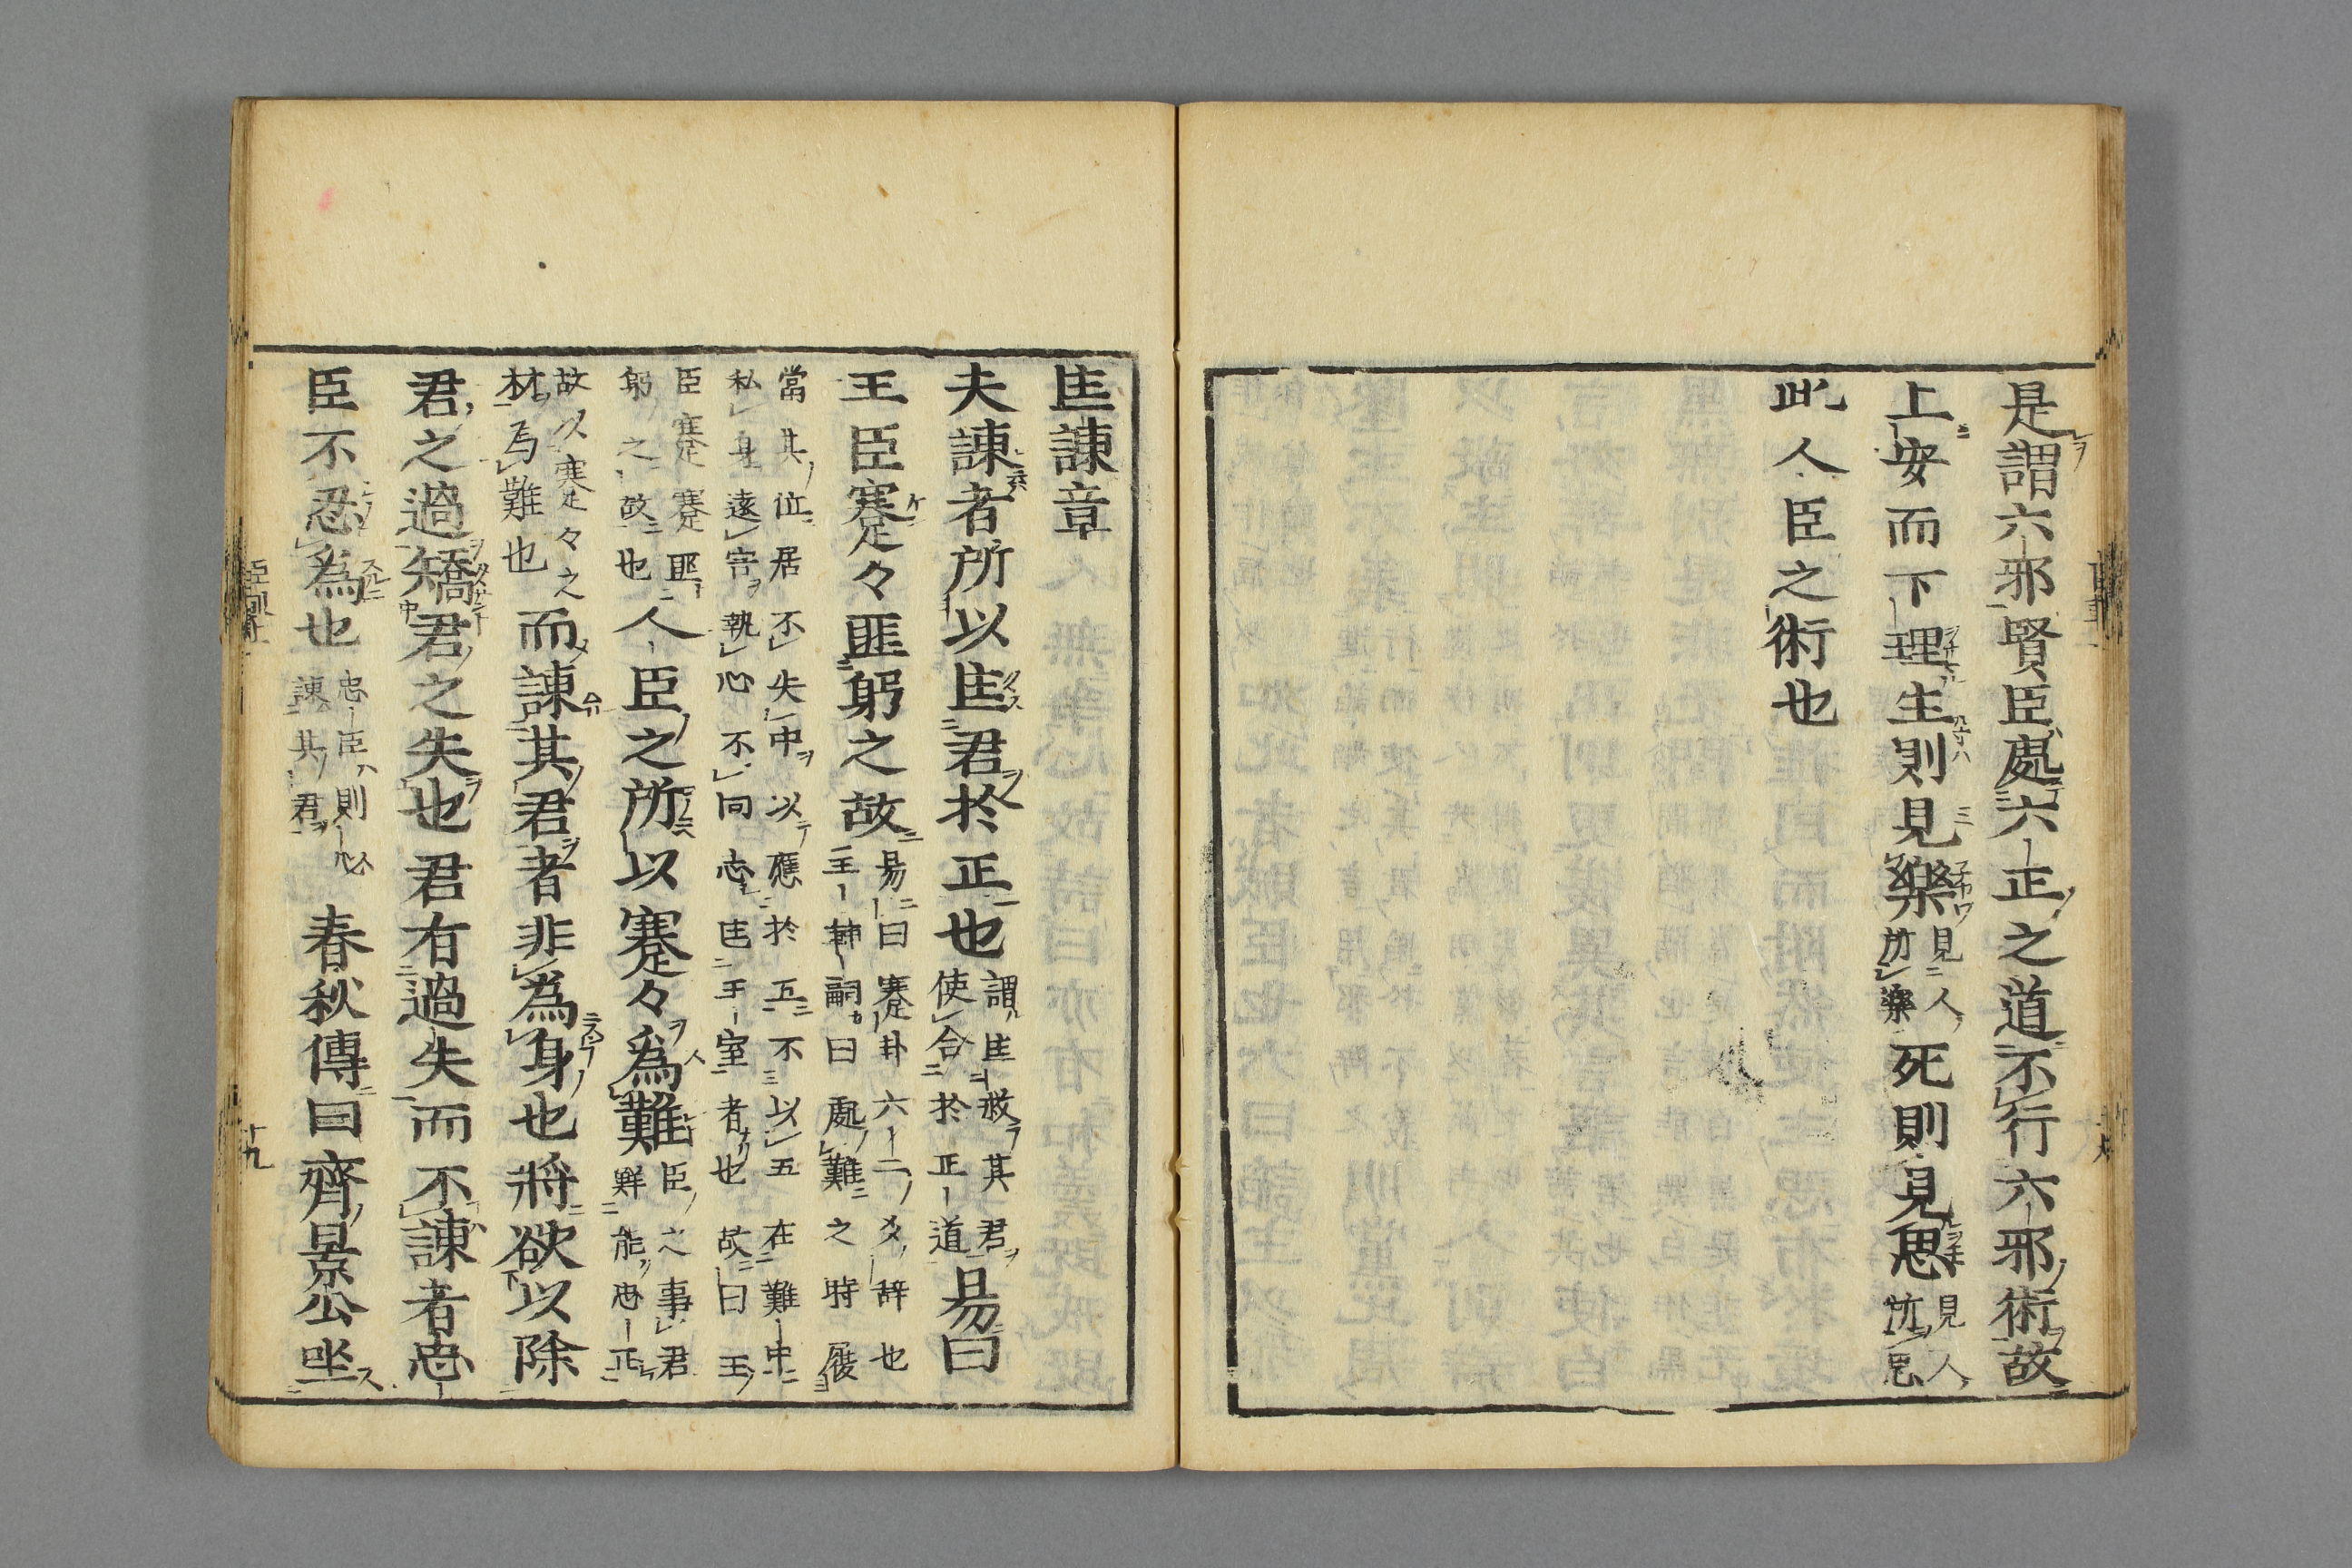 是謂六邪賢臣處六正之道不行六邪術故
上安而下理生則見樂見人於樂死則見思見人於思
此人臣之術也
匡諫章
夫諫者所以匡君於正也謂匡救其君使合於正道易曰
王臣蹇々匪躬之故易曰蹇卦六二爻辞也王輔嗣曰處難之時履
當其位居不失中以應於五不以五在難中
私身遠害執心不回志匡王室者也故曰王
臣蹇蹇匪
躬之故也人臣之所以蹇々為難臣之事君鮮能忠正
故以蹇々之
材爲難也而諫其君者非為身也將欲以除
君之過矯君之失也君有過失而不諫者忠
臣不忍為也忠臣則心諫其君春秋傳曰齊景公坐
十九